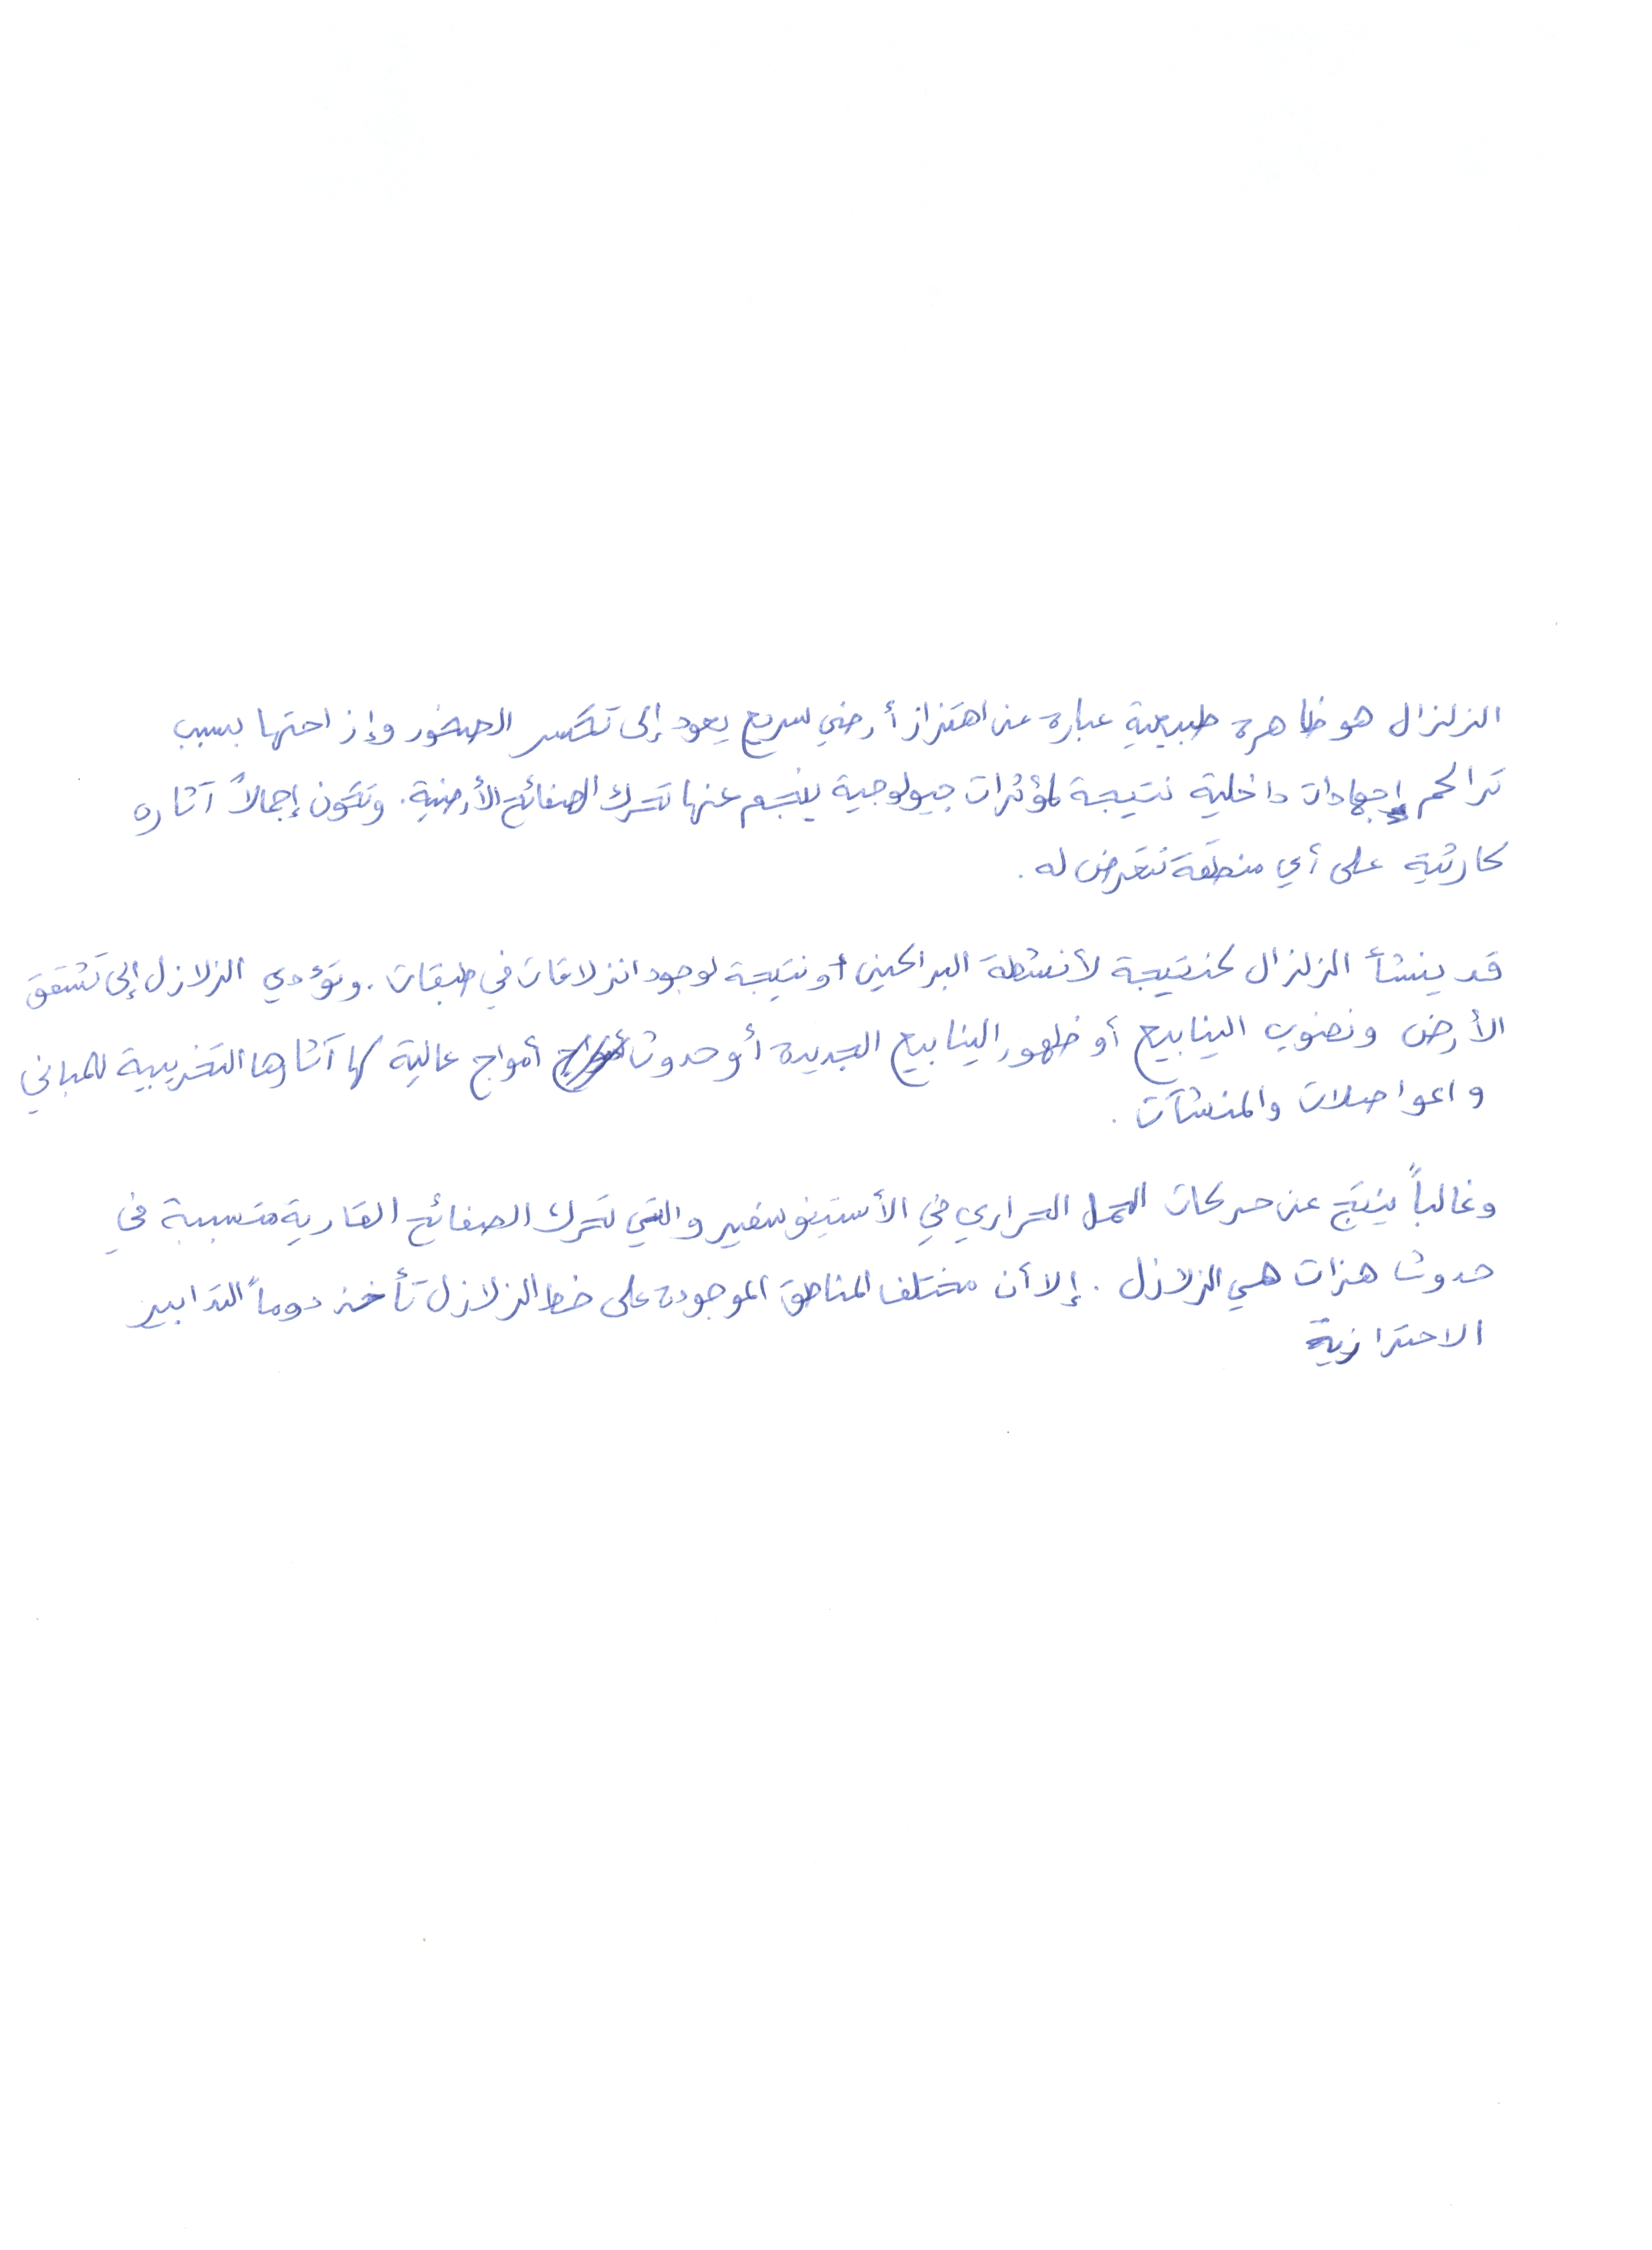 الزلزال هو ظاهرة طبيعية عبارة عن اهتزاز أرضي سريع يعود إلى تكسر الصخور وإزاحتها بسبب
تراكم إجهادات داخلية نتيجة لمؤثرات جيولوجية ينجم عنها تحرك الصفائح الأرضية. وتكون إجمالاً آثاره
كارثية على أي منطقة تتعرض له.
قد ينشأ الزلزال كنتيجة لأنشطة البراكين أو نتيجة لوجود انزلاقات في طبقات. وتؤدي الزلازل إلى تشقق
الأرض ونضوب الينابيع أو ظهور الينابيع الجديدة أو حدوث أمواج عالية لها آثارها التخريبية للمباني
والمواصلات والمنشآت.
وغالباً ينتج عن حركات الحمل الحراري في الأستينوسفير والتي تحرك الصفائح القارية متسببة في
حدوث هزات هي الزلازل. إلا أن مختلف المناطق الموجودة على خط الزلازل تأخذ دوماً التدابير
الاحترازية